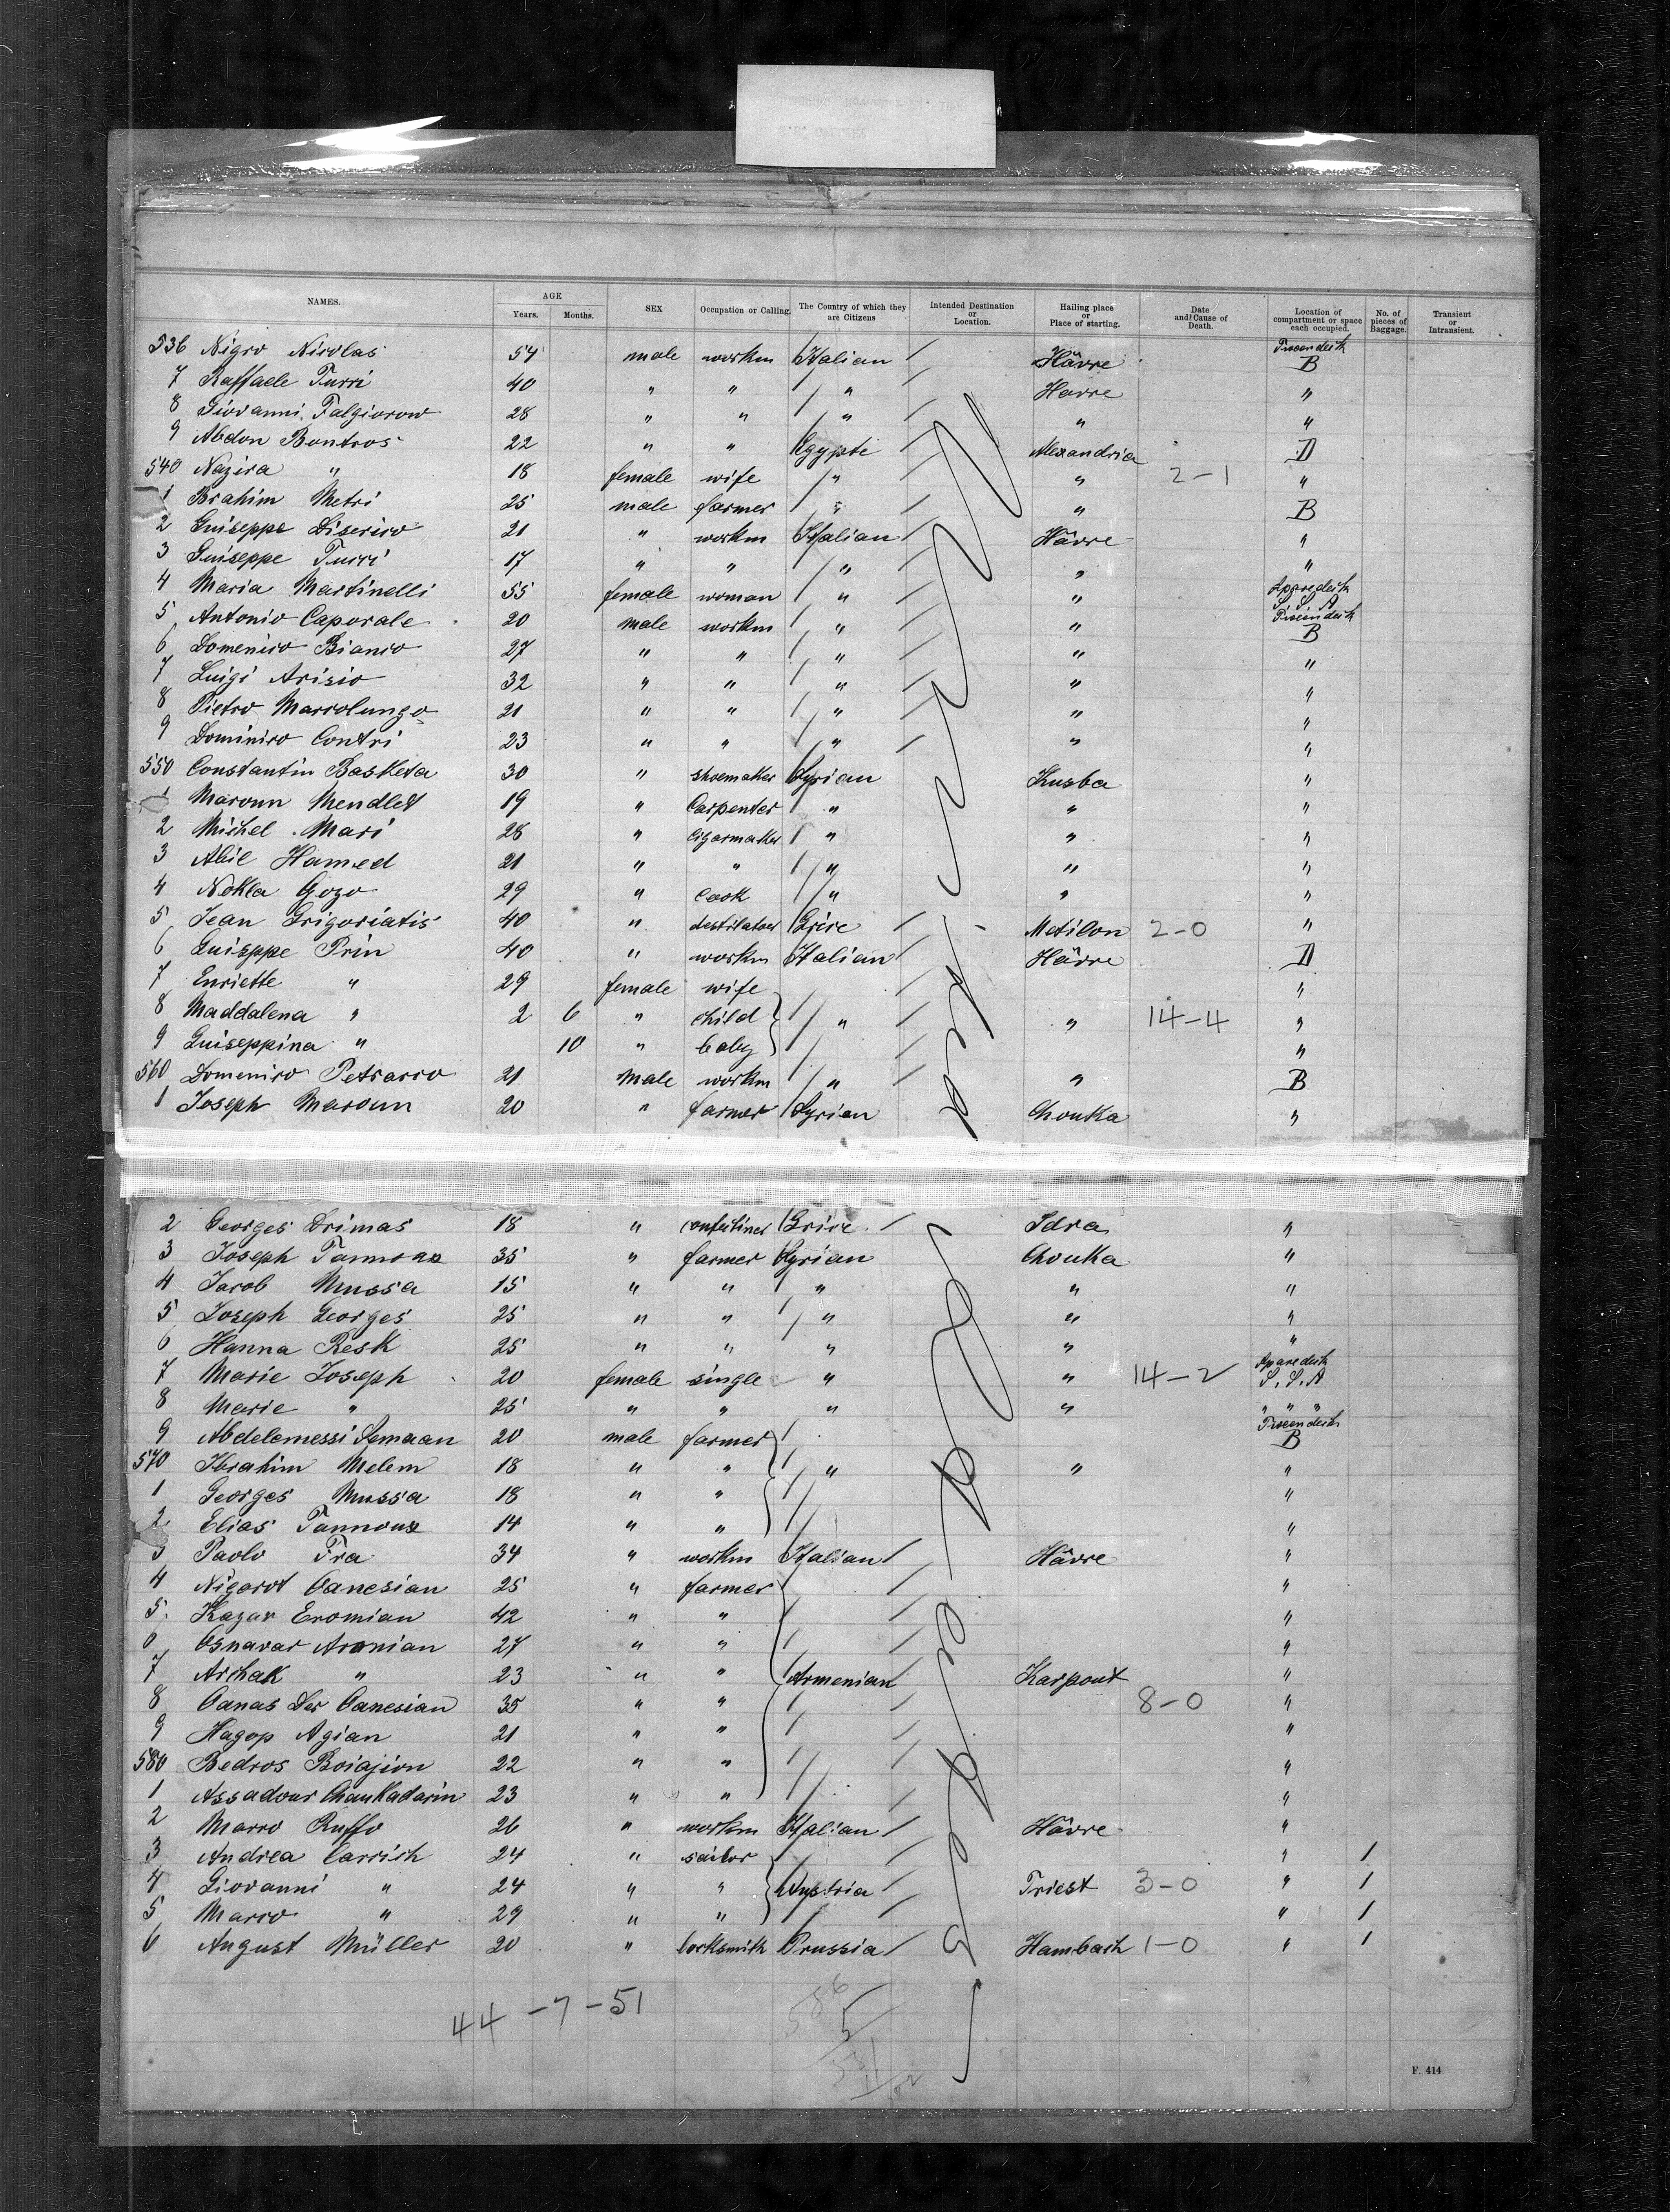 NAMES. AGE SEX Occupation or Calling. The Country of which they are Citizens Intended Destination or Location. Hailing place or Place of starting. Date and Cause of Death. Location of compartment or space each occupied. No. of pieces of Baggage. Transient or Intransient.
Years. Months.
536 Nigro Nicolas 54 male workm Italian Hâvre B
7 Raffaele Turri 40 " " " Havre "
8 Giovanni 28 " " " " "
9 Abdon Bontros 22 " " Egypte Alexandria D
540 Nazira " 18 female wife " " 2-1 "
1 Brahim Metri 25 male farmer " " B
2 Guiseppe 21 " workm Italian Hâvre "
3 Guiseppe Turri 17 " " " " "
4 Maria Martinelli 55 female woman " " S. S. A
5 Antonio Caporale 20 male workm " " B
6 Domenico Bianco 27 " " " " "
7 Luigi Arisio 32 " " " " "
8 Pietro Marcolungo 21 " " " " "
9 Dominico Contri 23 " " " " "
550 Constantin Basketa 30 " shoemaker Syrian Kusba "
1 Maroun Mendlet 19 " Carpenter " " "
2 Michel Mari 28 " Cigarmaker " " "
3 Abil Hamed 21 " " " " "
4 Nokla Gozo 29 " Cook " " "
5 Jean Grigoriatis 40 " destilator Grice Metilon 2-0 "
6 Guiseppe Prin 40 " workm Italian Hâvre D
7 Enriette " 29 female wife "
8 Maddalena " 2 6 " child " " 14-4 "
9 Guiseppina " 10 " baby "
560 Domenico Petracco 21 male workm " " B
1 Joseph Maroun 20 " farmer Syrian Chouka "
2 Georges Drimas 18 " confectiner Grice Idra "
3 Joseph Tannous 35 " farmer Syrian Chouka "
4 Jacob Mussa 15 " " " " "
5 Joseph Georges 25 " " " " "
6 Hanna Resk 25 " " " " "
7 Marie Joseph 20 female single " " 14-2 S. S. A
8 Marie " 25 " " " " " " "
9 Abdelemessi Semaan 20 male farmer B
570 Ibrahim Melem 18 " " " " "
1 Georges Mussa 18 " " "
2 Elias Tannous 14 " " "
3 Paolo Fra 34 " workm Italian Hâvre "
4 Nigarot Oanesian 25 " farmer "
5 Kazar Eromian 42 " " "
6 Osnavar Aronian 27 " " "
7 Archak " 23 " " Armenian Karpout "
8 Oanas Der Oanesian 35 " " 8-0 "
9 Hagop Agian 21 " " "
580 Bedros Boiajion 22 " " "
1 Assadour Chankadarin 23 " " "
2 Marco Ruffo 26 " workm Italian Hâvre "
3 Andrea Carrich 24 " sailor " 1
4 Giovanni " 24 " " Austria Triest 3-0 " 1
5 Marco " 29 " " " 1
6 August Müller 20 " locksmith Prussia Hambach 1-0 " 1
44 -7-51
586
5
F. 414